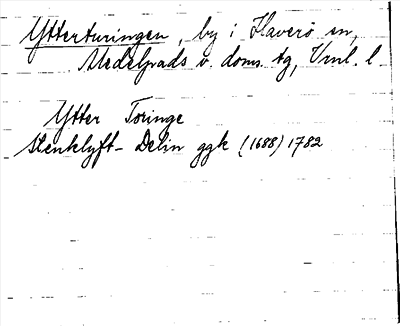 Ytterturingen, by i Haverö sn,
Medelpads v. doms. tg, Vnrl. l.
Ytter Toringe
Stenklyft- Delin ggk (1688) 1782